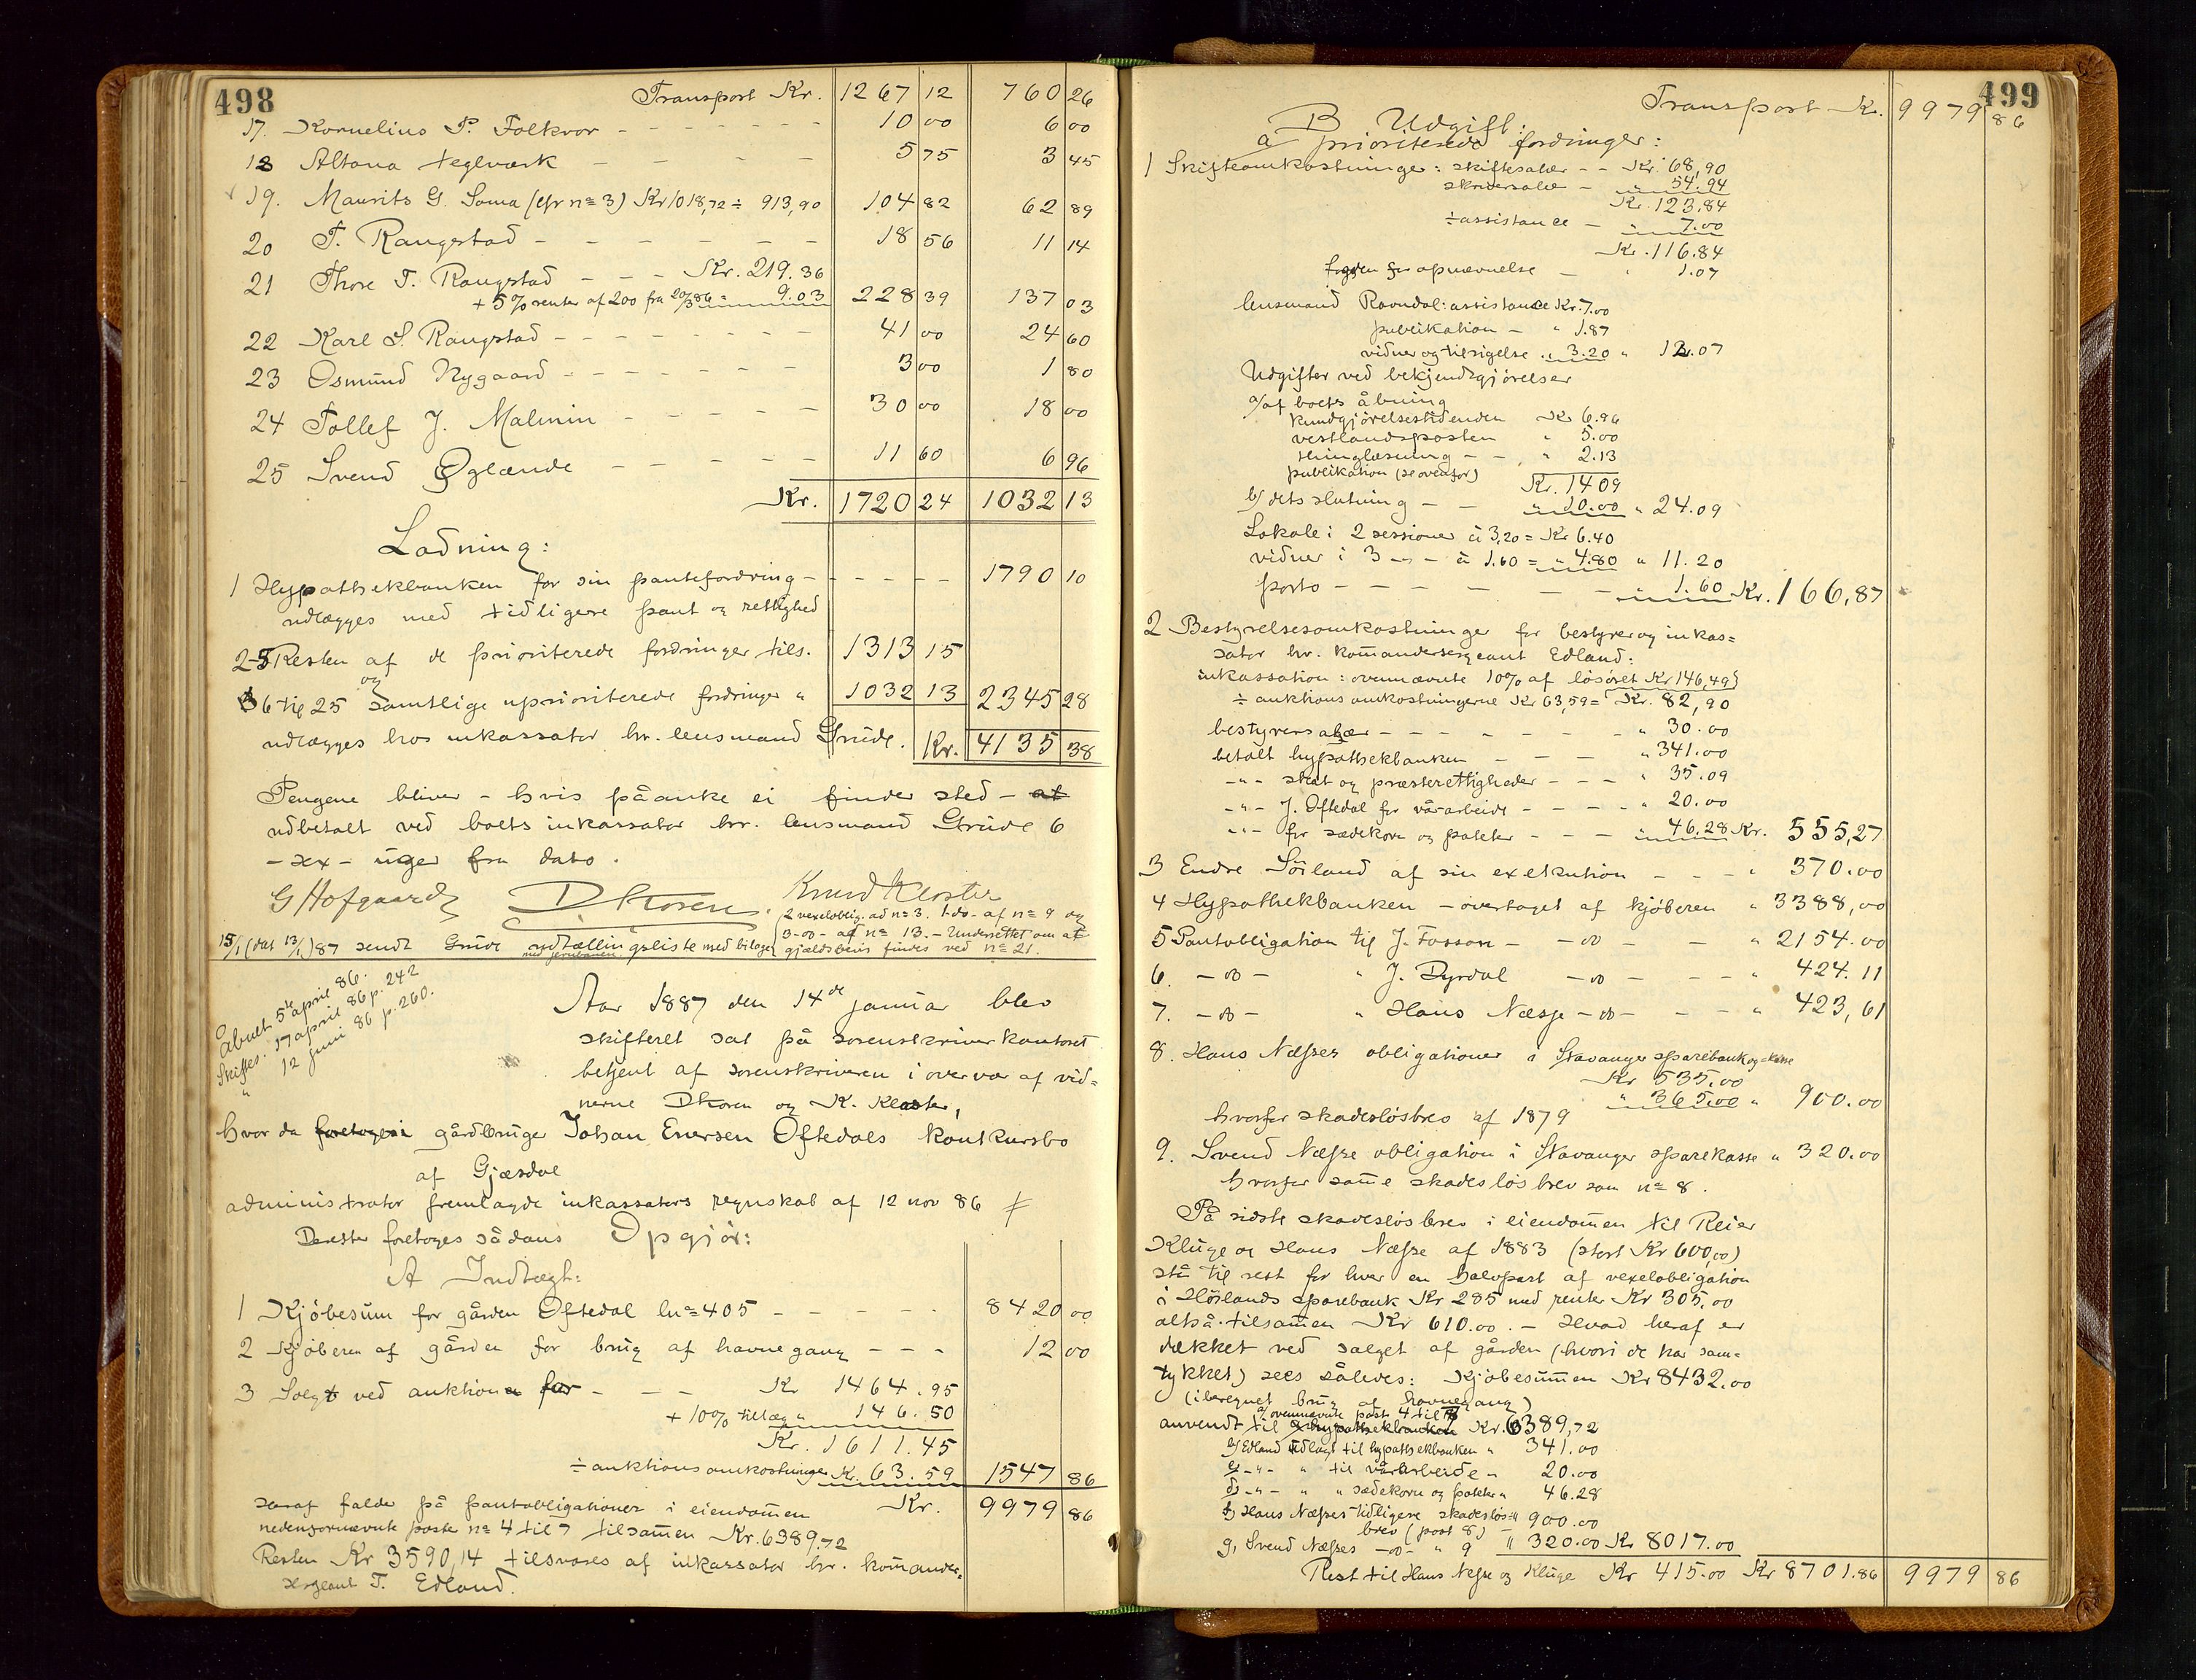 498
Transport Kr. 1267 12 760 26
17. Kornelius P. Folkvor - - - - - - - 10 00 6 00
18 Altona teglværk - - - - 5 75 3 45
19. Maurits G. Soma (cfr nº 3) Kr 1018,72 ÷ 913,90 104 82 62 89
20 T. Raugstad - - - - - - 18 56 11 14
21 Thore T. Raugstad - - - Kr. 219.36
+ 5% renter af 200 fra 20/3 86 = 9.03 228 39 137 03
22 Karl S. Raugstad - - - - - - 41 00 24 60
23 Osmund Nygaard - - - - - - - 3 00 1 80
24 Tollef J. Malmin - - - - - 30 00 18 00
25 Svend Øglænde - - - - - 11 60 6 96
Kr. 1720 24 1032 13
Ladning:
1 Hypothekbanken for sin pantefordring - - - - - 1790 10
udlægges med tidligere pant og rettighed
2-5 Resten af de prioriterede fordringer tils. 1313 15
og
6 til 25 samtlige uprioriterede fordringer " 1032 13 2345 28
udlægges hos inkassator hr. lensmand Grude. Kr. 4135 38
Pengene bliver - hvis påanke ei finder sted - at
udbetalt ved boets inkassator hr. lensmand Grude 6
- sex - uger fra dato.
G Hofgaard D Thoren. Knud Kloster
2 vexeloblig. ad nº 3. 1 do - af nº 9 og
3 - do - af nº 13. - Underrettet om at
15/1 (dat 13/1) 87 sendt Grude udtællingsliste med bilager gjældsbevis findes ved nº 21.
med jernbanen
Åbnet 5te april 86.
Skiftes. 17 april 86 p. 242
" 12 juni 86 p. 260.
Aar 1887 den 14de januar blev
skifteret sat på sorenskriverkontoret
betjent af sorenskriveren i overvær af vid=
nerne D Thoren og K. Kloster,
hvor da foretoges i gårdbruger Johan Enersen Oftedals konkursbo
af Gjæsdal
administrator fremlagde inkassators regnskab af 12 nov 86
Derefter foretoges sådans Opgjør:
A Indtægt:
1 Kjöbesum for gården Oftedal lnº 405 - - - - - 8420 00
2 Kjöberen af gården for brug af havnegang - - - 12 00
3 Solgt ved auktion for - - - Kr 1464.95
+ 10% tillæg " 146.50
Kr. 1611.45
÷ auktionsomkostninger Kr. 63.59 1547 86
Heraf falder på pantobligationer i eiendommen Kr. 9979 86
nedenfornævnte poste nº 4 til 7 tilsammen Kr. 6389.72
Resten Kr 3590,14 tilsvares af inkassator hr. komander=
sergeant T. Edland.
499
Transport Kr. 9979 86
B Udgift:
a prioriterede fordringer:
1 Skifteomkostninger: skiftesalær - - Kr. 68,90
skriversalær - " 54.94
Kr. 123.84
÷ assistance - " 7.00
Kr. 116.84
fogden for opnævnelse - " 1.07
lensmand Ravndal: assistance Kr. 7.00
publikation - " 1.87
vidner og tilsigelse " 3.20 " 12.07
Udgifter ved bekjendtgjörelser
a/ af boets åbning
kundgjörelsestidenden Kr 6.96
vestlandsposten " 5.00
thinglæsning - - " 2.13
publikation (se ovenfor)
Kr. 14 09
b/ dets slutning - - " 10.00 " 24.09
Lokale i 2 sessioner à 3,20 = Kr 6.40
vidner i 3 -"- - à 1.60 = " 4.80 " 11.20
porto - - - - - - " 1.60 Kr. 166,87
2 Bestyrelsesomkostninger for bestyrer og inkas=
sator hr. komandersergeant Edland:
inkassation: ovennævnte 10% af lösöret Kr 146,49
÷ auktionsomkostningerne Kr 63,59 = Kr. 82,90
bestyrersalær - - - - - - - " 30.00
betalt hypothekbanken - - - " 341.00
-"- skat og præsterettigheder - - - " 35.09
-"- J. Oftedal for vårarbeide - - - - " 20.00
-"- for sædekorn og poteter - - - " 46.28 Kr. 555,27
3 Endre Sörland af sin exekution - - - " 370.00
4 Hypothekbanken - overtaget af kjöberen " 3388,00
5 Pantobligation til J. Fosson - - do - - " 2154.00
6. - do - " J. Dyrdal - do - - - " 424.11
7. - do - " Hans Næsse - do - - - " 423,61
8. Hans Næsses obligationer i Stavanger sparebank og =kasse
Kr 535.00
" 365.00 " 900.00
hvorfor skadeslösbrev af 1879
9. Svend Næsse obligation i Stavanger sparekasse " 320.00
hvorfor samme skadeslösbrev som nº 8.
På sidste skadeslösbrev i eiendommen til Reier
Kluge og Hans Næsse af 1883 (stort Kr 600,00)
stå til rest for hver en halvpart af vexelobligation
i Höilands sparebank Kr 285 med renter Kr 305.00
altså tilsammen Kr 610.00. - Hvad heraf er
dækket ved salget af gården (hvori de har sam=
tykket) sees således: Kjöbesummen Kr 8432.00
(iberegnet brug af havnegang)
a/ ovennævnte post 4 til 7
anvendt til hypothekbanken Kr. 6389,72
b/ Edland udlagt til hypothekbanken " 341.00
c/ -"- " til vårarbeide " 20.00
d/ -"- " " sædekorn og poteter " 46.28
f/ Hans Næsses tidligere skadeslös= " 900.00
brev (post 8)
g, Svend Næsses - do - " 9 " 320.00 Kr 8017.00
Rest til Hans Næsse og Kluge Kr 415.00 Kr 8701.86 9979 86